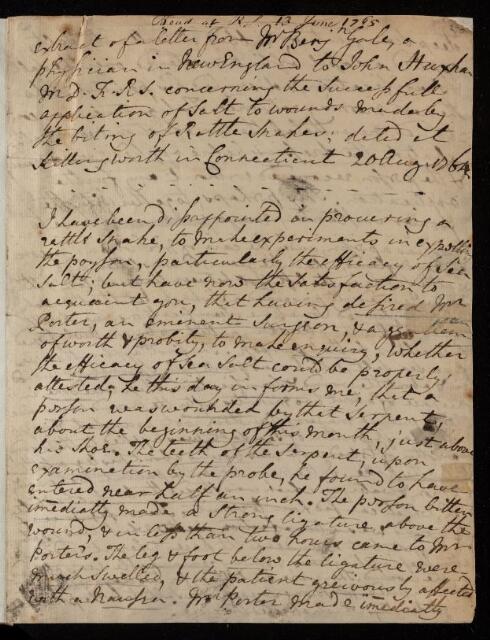 Read at R.S. 13 June 1765
extract of a letter from Mr Benjn Gale, a
physician in New England to John Huxham
M.D. F.R.S. concerning the Successfull
application of Salt to wounds made by
the biting of Rattle Snakes: dated at
Killingworth in Connecticut 20 Aug. 1764
I have been disappointed in procuring a
rattle Snake, to make experiments in expelling
the poyson, particularly the efficacy of Sea
Salt; but have now the Satisfaction to
acquaint you, that having desired Mr
Porter, an eminent Surgeon, & a gentleman
of worth & probity, to make enquiry, Whether
the efficacy of Sea Salt could be properly
attested; he this day informs me, that a
person was wounded by that Serpent,
about the beginning of this month, just above
his Shoe. The teeth of the Serpent, upon
examination by the probe, he found to have
entered near half an inch. The person bitten
imediatly made a strong ligature above the
wound, & in less than two hours came to Mr
Porter's. The leg & foot below the ligature were
much Swelled, & the patient greivously affected
with a Nausea. Mr Porter made imediatly